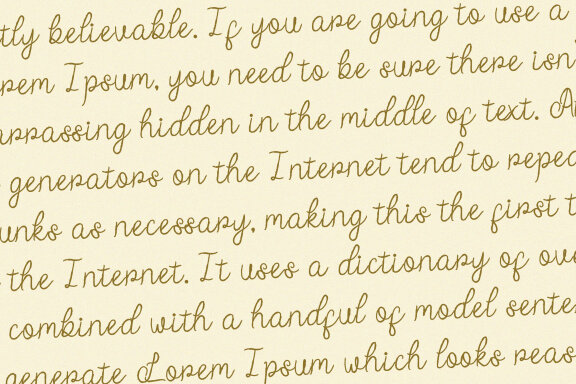 tly believable. If you are going to use a
rem Ipsum, you need to be sure there isn'
arrassing hidden in the middle of text. Al
generators on the Internet tend to repea
unks as necessary, making this the first t
the Internet. It uses a dictionary of ove
combined with a handful of model senten
generate Lorem Ipsum which looks reas